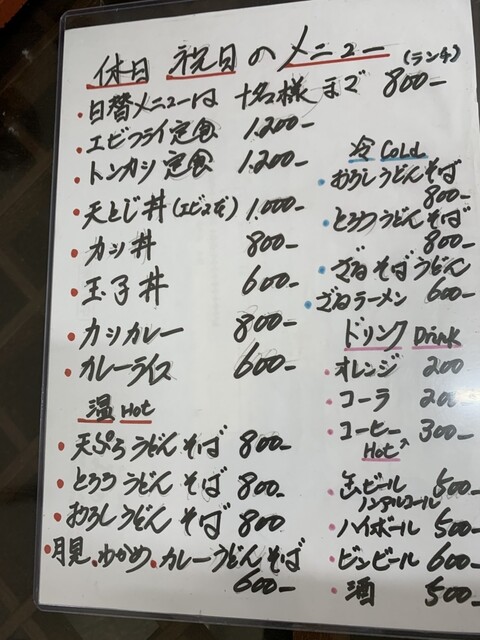 休日 祝日のメニュー (ランチ)
・日替メニューは 十名様まで 800-
・エビフライ定食 1,200-
・トンカツ定食 1,200-
・天とじ丼(エビ2本) 1,000-
・カツ丼 800-
・玉子丼 600-
・カツカレー 800-
・カレーライス 600-
温 Hot
・天ぷらうどん そば 800-
・とろろうどん そば 800-
・おろしうどん そば 800-
・月見、わかめ、カレーうどん そば
600-
冷 Cold
・おろしうどんそば
800-
・とろろうどんそば
800-
・ざるそばうどん
・ざるラーメン 600-
ドリンク Drink
・オレンジ 200
・コーラ 200
・コーヒー 300-
Hot
・缶ビール 500-
ノンアルコール
・ハイボール 500-
・ビンビール 600-
・酒 500-